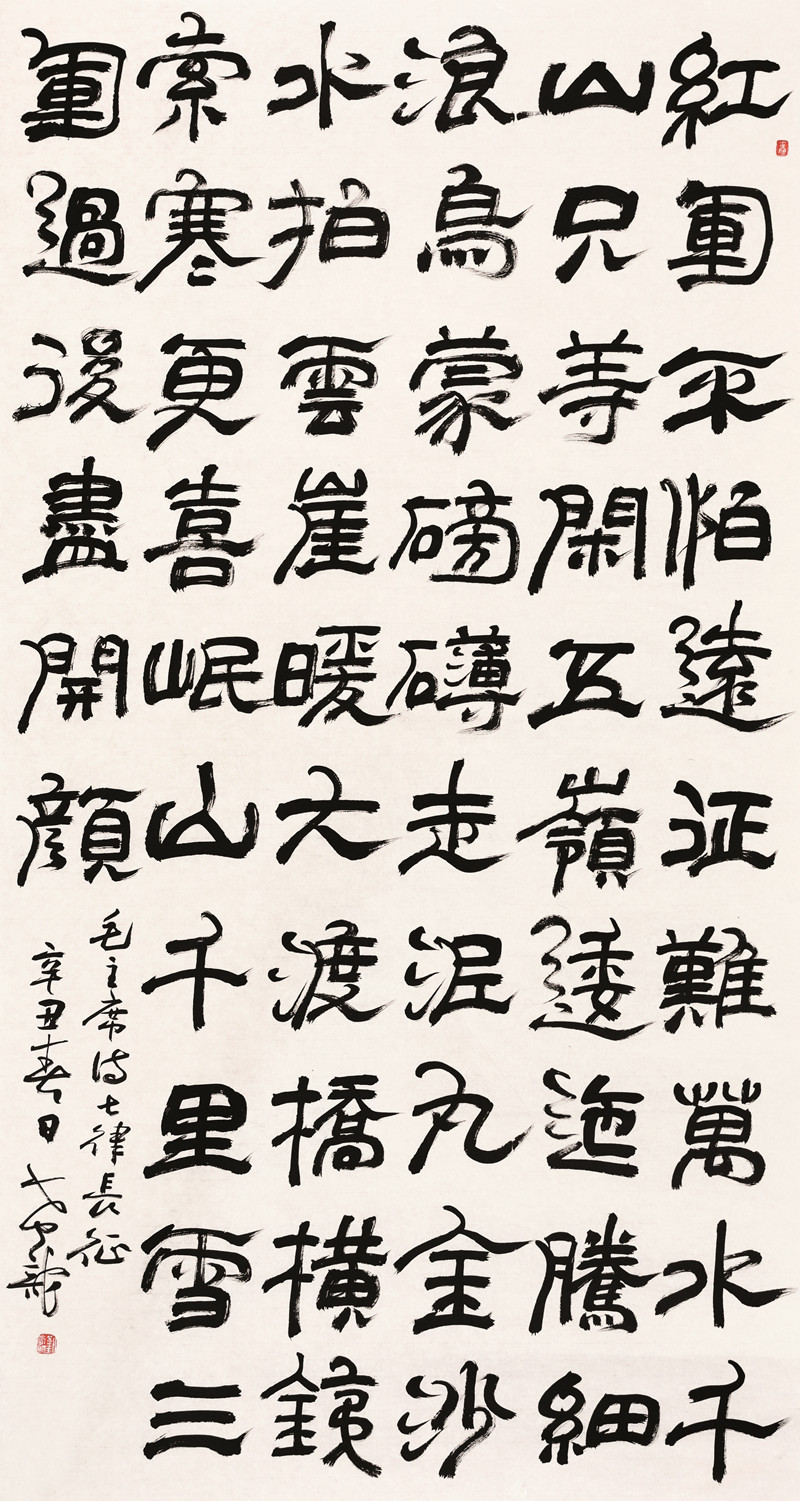 紅軍不怕遠征難萬水千
山只等閑五嶺逶迤騰細
浪烏蒙磅礴走泥丸金沙
水拍雲崖暖大渡橋橫鐵
索寒更喜岷山千里雪三
軍過後盡開顏
毛主席詩七律長征
辛丑春日